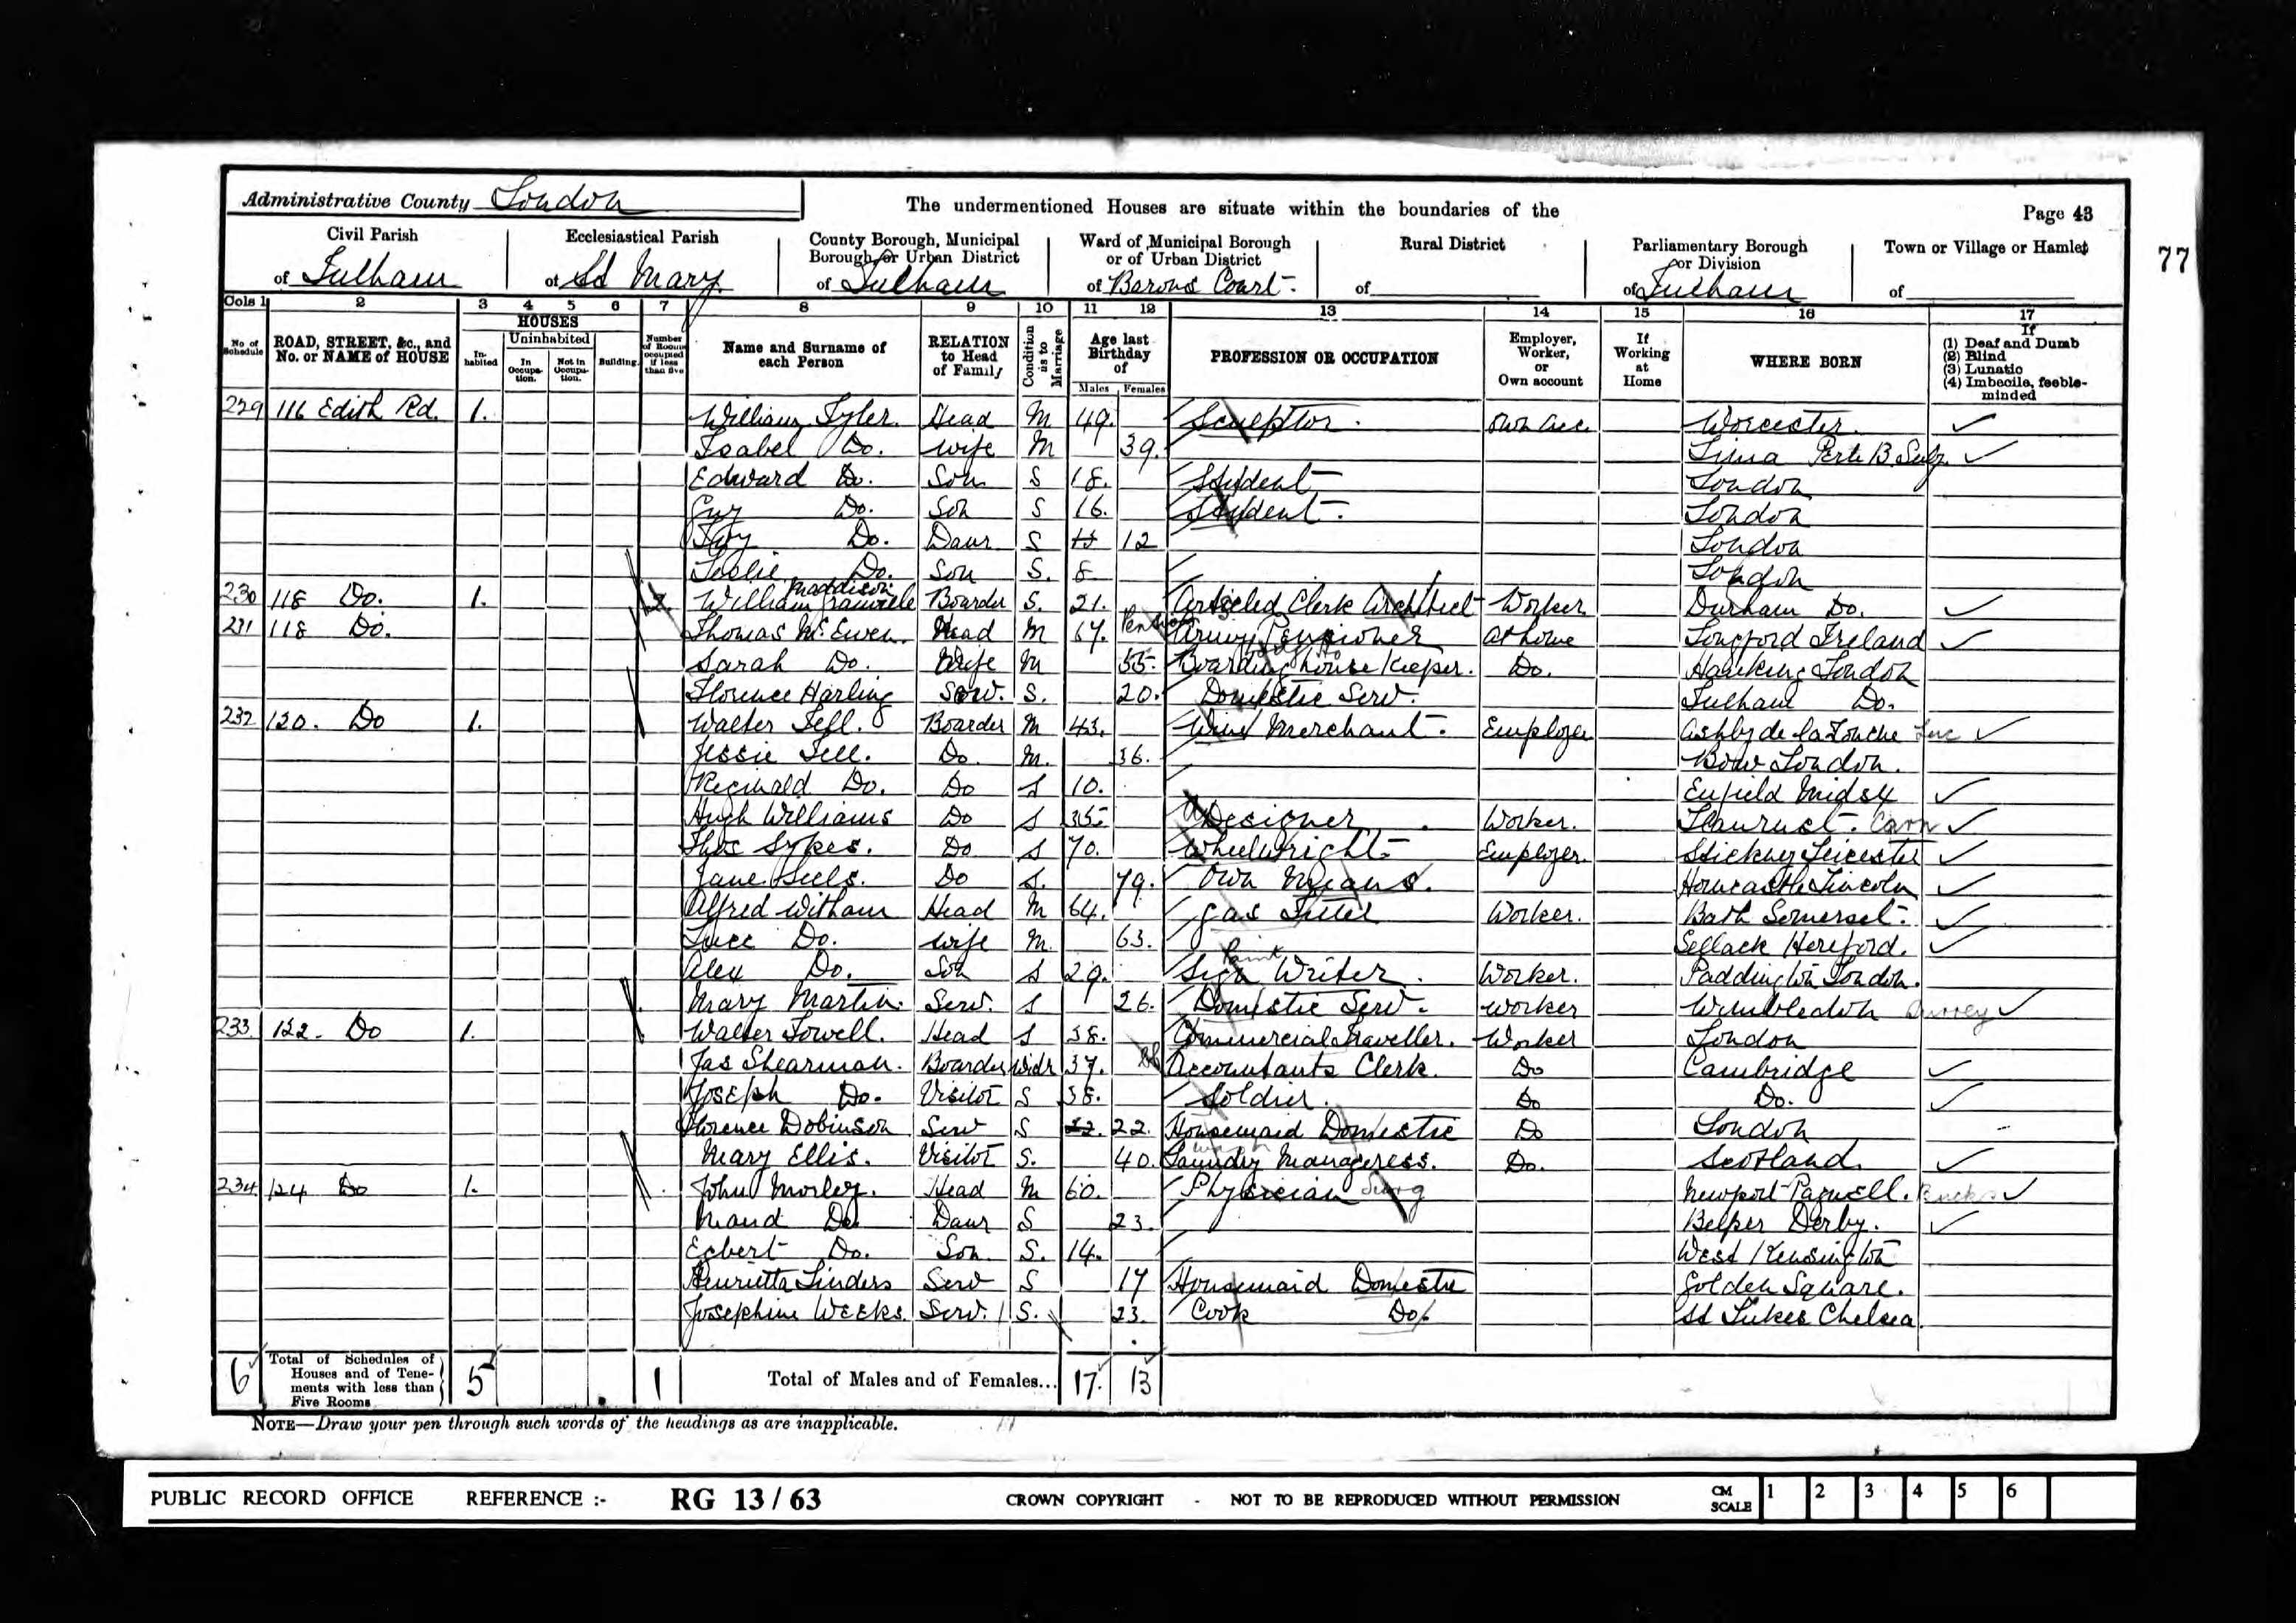 Administrative County London
The undermentioned Houses are situate within the boundaries of the
Page 43
77
Civil Parish of Fulham
Ecclesiastical Parish of St Mary
County Borough, Municipal Borough, or Urban District of Fulham
Ward of Municipal Borough or of Urban District of Barons Court
Rural District of
Parliamentary Borough or Division of Fulham
Town or Village or Hamlet of
Cols 1 2 3 4 5 6 7 8 9 10 11 12 13 14 15 16 17
No. of Schedule
ROAD, STREET, &c., and No. or NAME of HOUSE
HOUSES
Inhabited
Uninhabited
In Occupation.
Not in Occupation.
Building.
Number of Rooms occupied if less than five
Name and Surname of each Person
RELATION to Head of Family
Condition as to Marriage
Age last Birthday of
Males Females
PROFESSION OR OCCUPATION
Employer, Worker, or Own account
If Working at Home
WHERE BORN
If
(1) Deaf and Dumb
(2) Blind
(3) Lunatic
(4) Imbecile, feeble-minded
229 116 Edith Rd. 1. William Tyler. Head M 49. Sculptor. Own acc Worcester.
Isabel Do. Wife M 39. Lima
Edward Do. Son S 18. Student London
Guy Do. Son S 16. Student. London
Do. Daur S 12 London
Leslie Do. Son S. 8 London
230 118 Do. 1. William Maddison Boarder S. 21. Articled Clerk Architect Worker Durham Do.
231 118 Do. Thomas McEwen. Head M 67. Army Pensioner At home Longford Ireland
Sarah Do. Wife M 55. Boarding house Keeper. Do. London
Florence Harling Serv. S. 20. Domestic Serv. Fulham Do.
232 120. Do 1. Walter Tell. Boarder M 43. Wine Merchant. Employer Ashby de la Zouche
Jessie Tell. Do. M. 36. Bow London.
Reginald Do. Do S 10. Enfield Midsx
Hugh Williams Do S 35. Designer Worker. Llanrwst. Carn
Thos Sykes. Do S 70. Wheelwright Employer. Stickney Leicester
Jane Do S. 79. Own Means. Horncastle Lincoln
Alfred Witham Head M 64. Gas Fitter Worker. Bath Somerset.
Do. Wife M. 63. Sellack Hereford.
Alex Do. Son S 29. Sign Writer. Paint Worker. Paddington London.
Mary Martin. Serv. S 26. Domestic Serv. Worker Wimbledon Surrey
233. 122. Do 1. Walter Towell. Head S 38. Commercial Traveller. Worker London
Jas Shearman. Boarder Widr 37. Accountants Clerk. Do Cambridge
Joseph Do. Visitor S 38. Soldier. Do Do.
Florence Dobinson Serv S 22. 22. Housemaid Domestic Do London
Mary Ellis. Visitor S. 40. Laundry Manageress. Do. Scotland
234 124 Do 1. John Morley. Head M 60. Physician Surg Newport Pagnell. Bucks
Maud Do. Daur S 23. Belper Derby.
Egbert Do. Son. S. 14. West Kensington
Henrietta Linders Serv S 17 Housemaid Domestic Golden Square.
Josephine Weeks. Serv. S. 23. Cook Do. St Lukes Chelsea
6 Total of Schedules of Houses and of Tenements with less than Five Rooms 5 1 Total of Males and of Females... 17. 13
NOTE—Draw your pen through such words of the headings as are inapplicable.
PUBLIC RECORD OFFICE REFERENCE :- RG 13/63 CROWN COPYRIGHT - NOT TO BE REPRODUCED WITHOUT PERMISSION CM SCALE 1 2 3 4 5 6